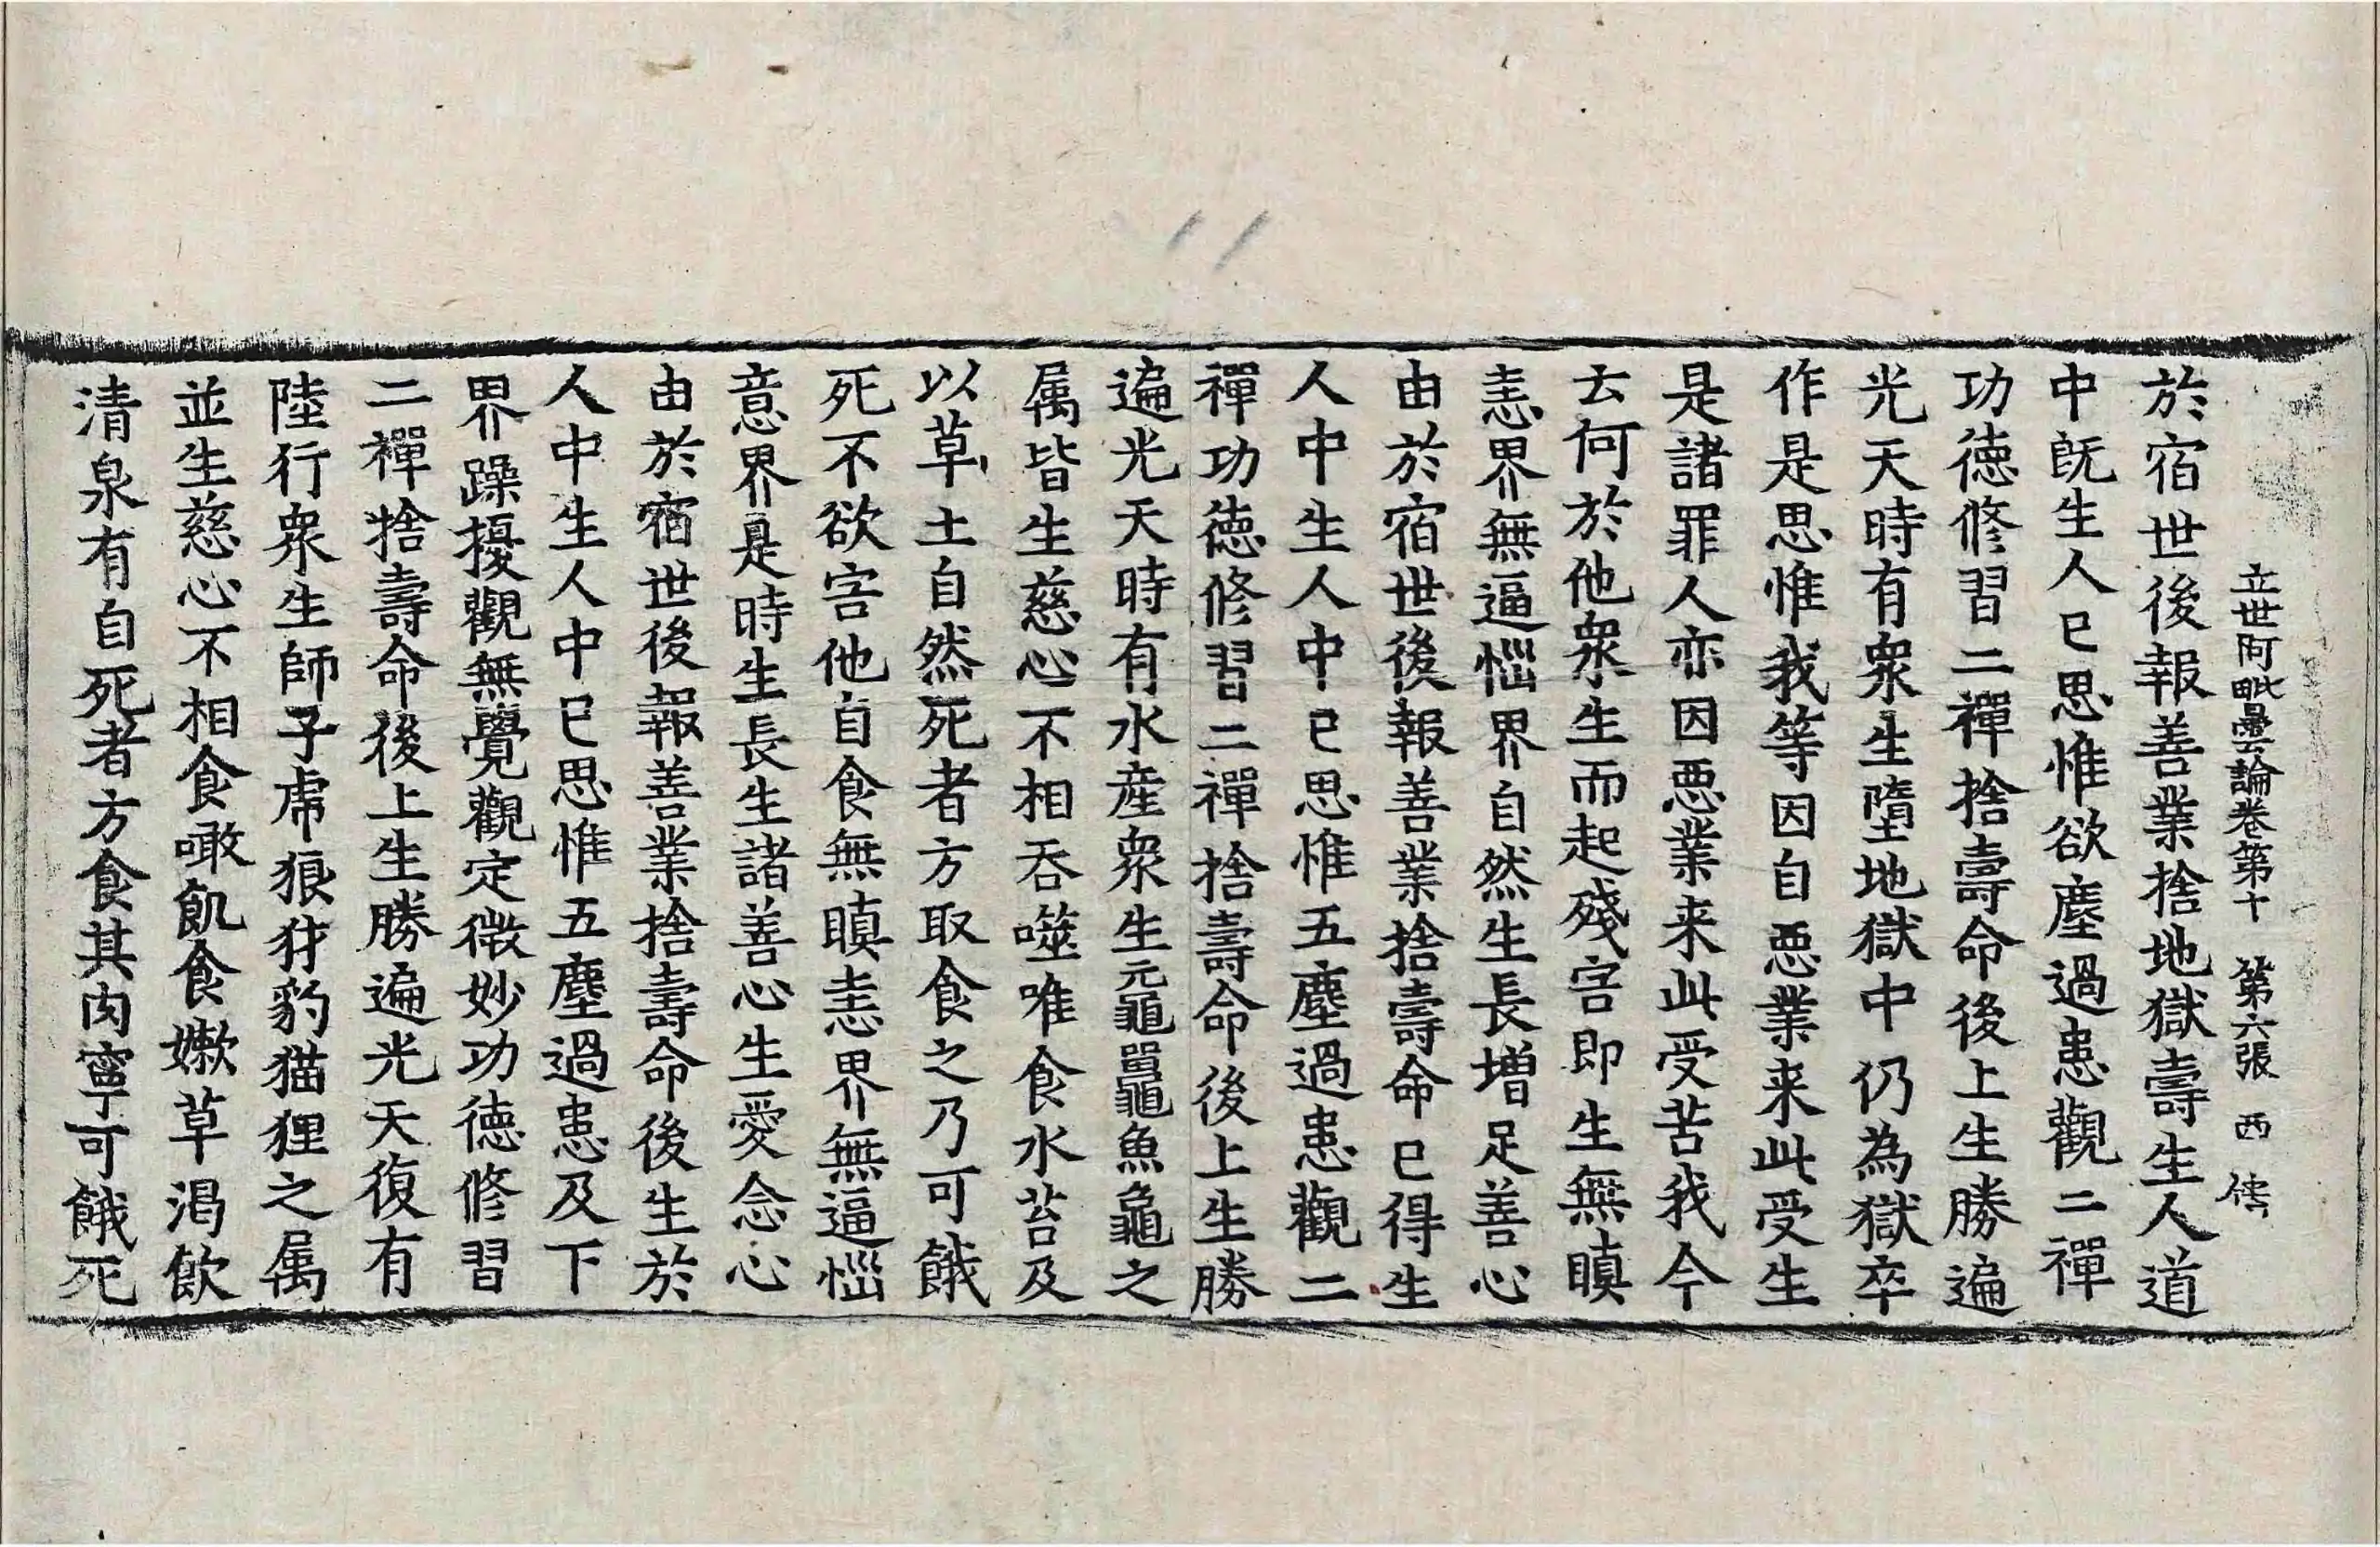 立世阿毗曇論卷第十　第六張　西
於宿世後報善業捨地獄壽生人道
中旣生人已思惟欲塵過患觀二禪
功德修習二禪捨壽命後上生勝遍
光天時有衆生墮地獄中仍為獄卒
作是思惟我等因自惡業来此受生
是諸罪人亦因惡業来此受苦我今
云何於他衆生而起殘害即生無瞋
恚界無逼惱界自然生長增足善心
由於宿世後報善業捨壽命已得生
人中生人中已思惟五塵過患觀二
禪功德修習二禪捨壽命後上生勝
遍光天時有水產衆生黿鼉魚龜之
属皆生慈心不相吞噬唯食水苔及
以草土自然死者方取食之乃可餓
死不欲害他自食無瞋恚界無逼惱
意界是時生長生諸善心生愛念心
由於宿世後報善業捨壽命後生於
人中生人中已思惟五塵過患及下
界躁擾觀無覺觀定微妙功德修習
二禪捨壽命後上生勝遍光天復有
陸行衆生師子虎狼犲豹猫狸之属
並生慈心不相食噉飢食嫩草渴飲
清泉有自死者方食其肉寧可餓死